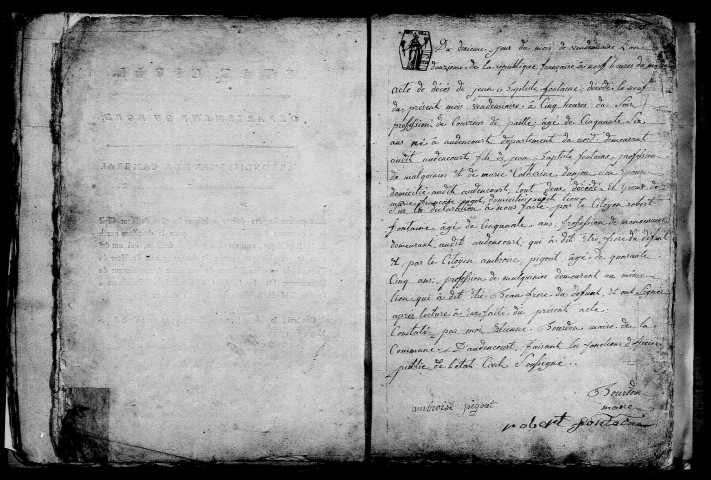 Du dixieme jour du mois de vendemiaire L'an
douzieme de la république française à neuf heures du
acte de décés de jean Baptiste fontaine, décédé le neuf
du présent mois vendemiaire à Cinq heures du Soir
profession de Couvreur de paille, âgé de Cinquante Six
ans né à audencourt département du nord, demeurant
audit audencourt fils de jean Baptiste fontaine, profession
de mulquinier Et de marie Catherine danjou
domiciliés audit audencourt, tout deux décédés Et Epoux de
marie françoise pigout domiciliée susdit lieu
Sur la déclaration à nous faite par le Citoyen robert
fontaine âgé de Cinquante ans, profession de manouvrier
demeurant audit audencourt qui à dit Etre frere du défunt
Et par le Citoyen ambroise pigout, âgé de quarante
Cinq ans, profession de mulquinier demeurant au même
lieu qui à dit Etre Beau frere du défunt, Et ont Signés
apres lecture à Eux faite du présent acte
Constaté par moi Etienne Bourdon maire de la
Commune D'audencourt, faisant les fonctions d'officier
public de l'état Civil Soussigné
Bourdon
maire
ambroise pigout
robert fontaine